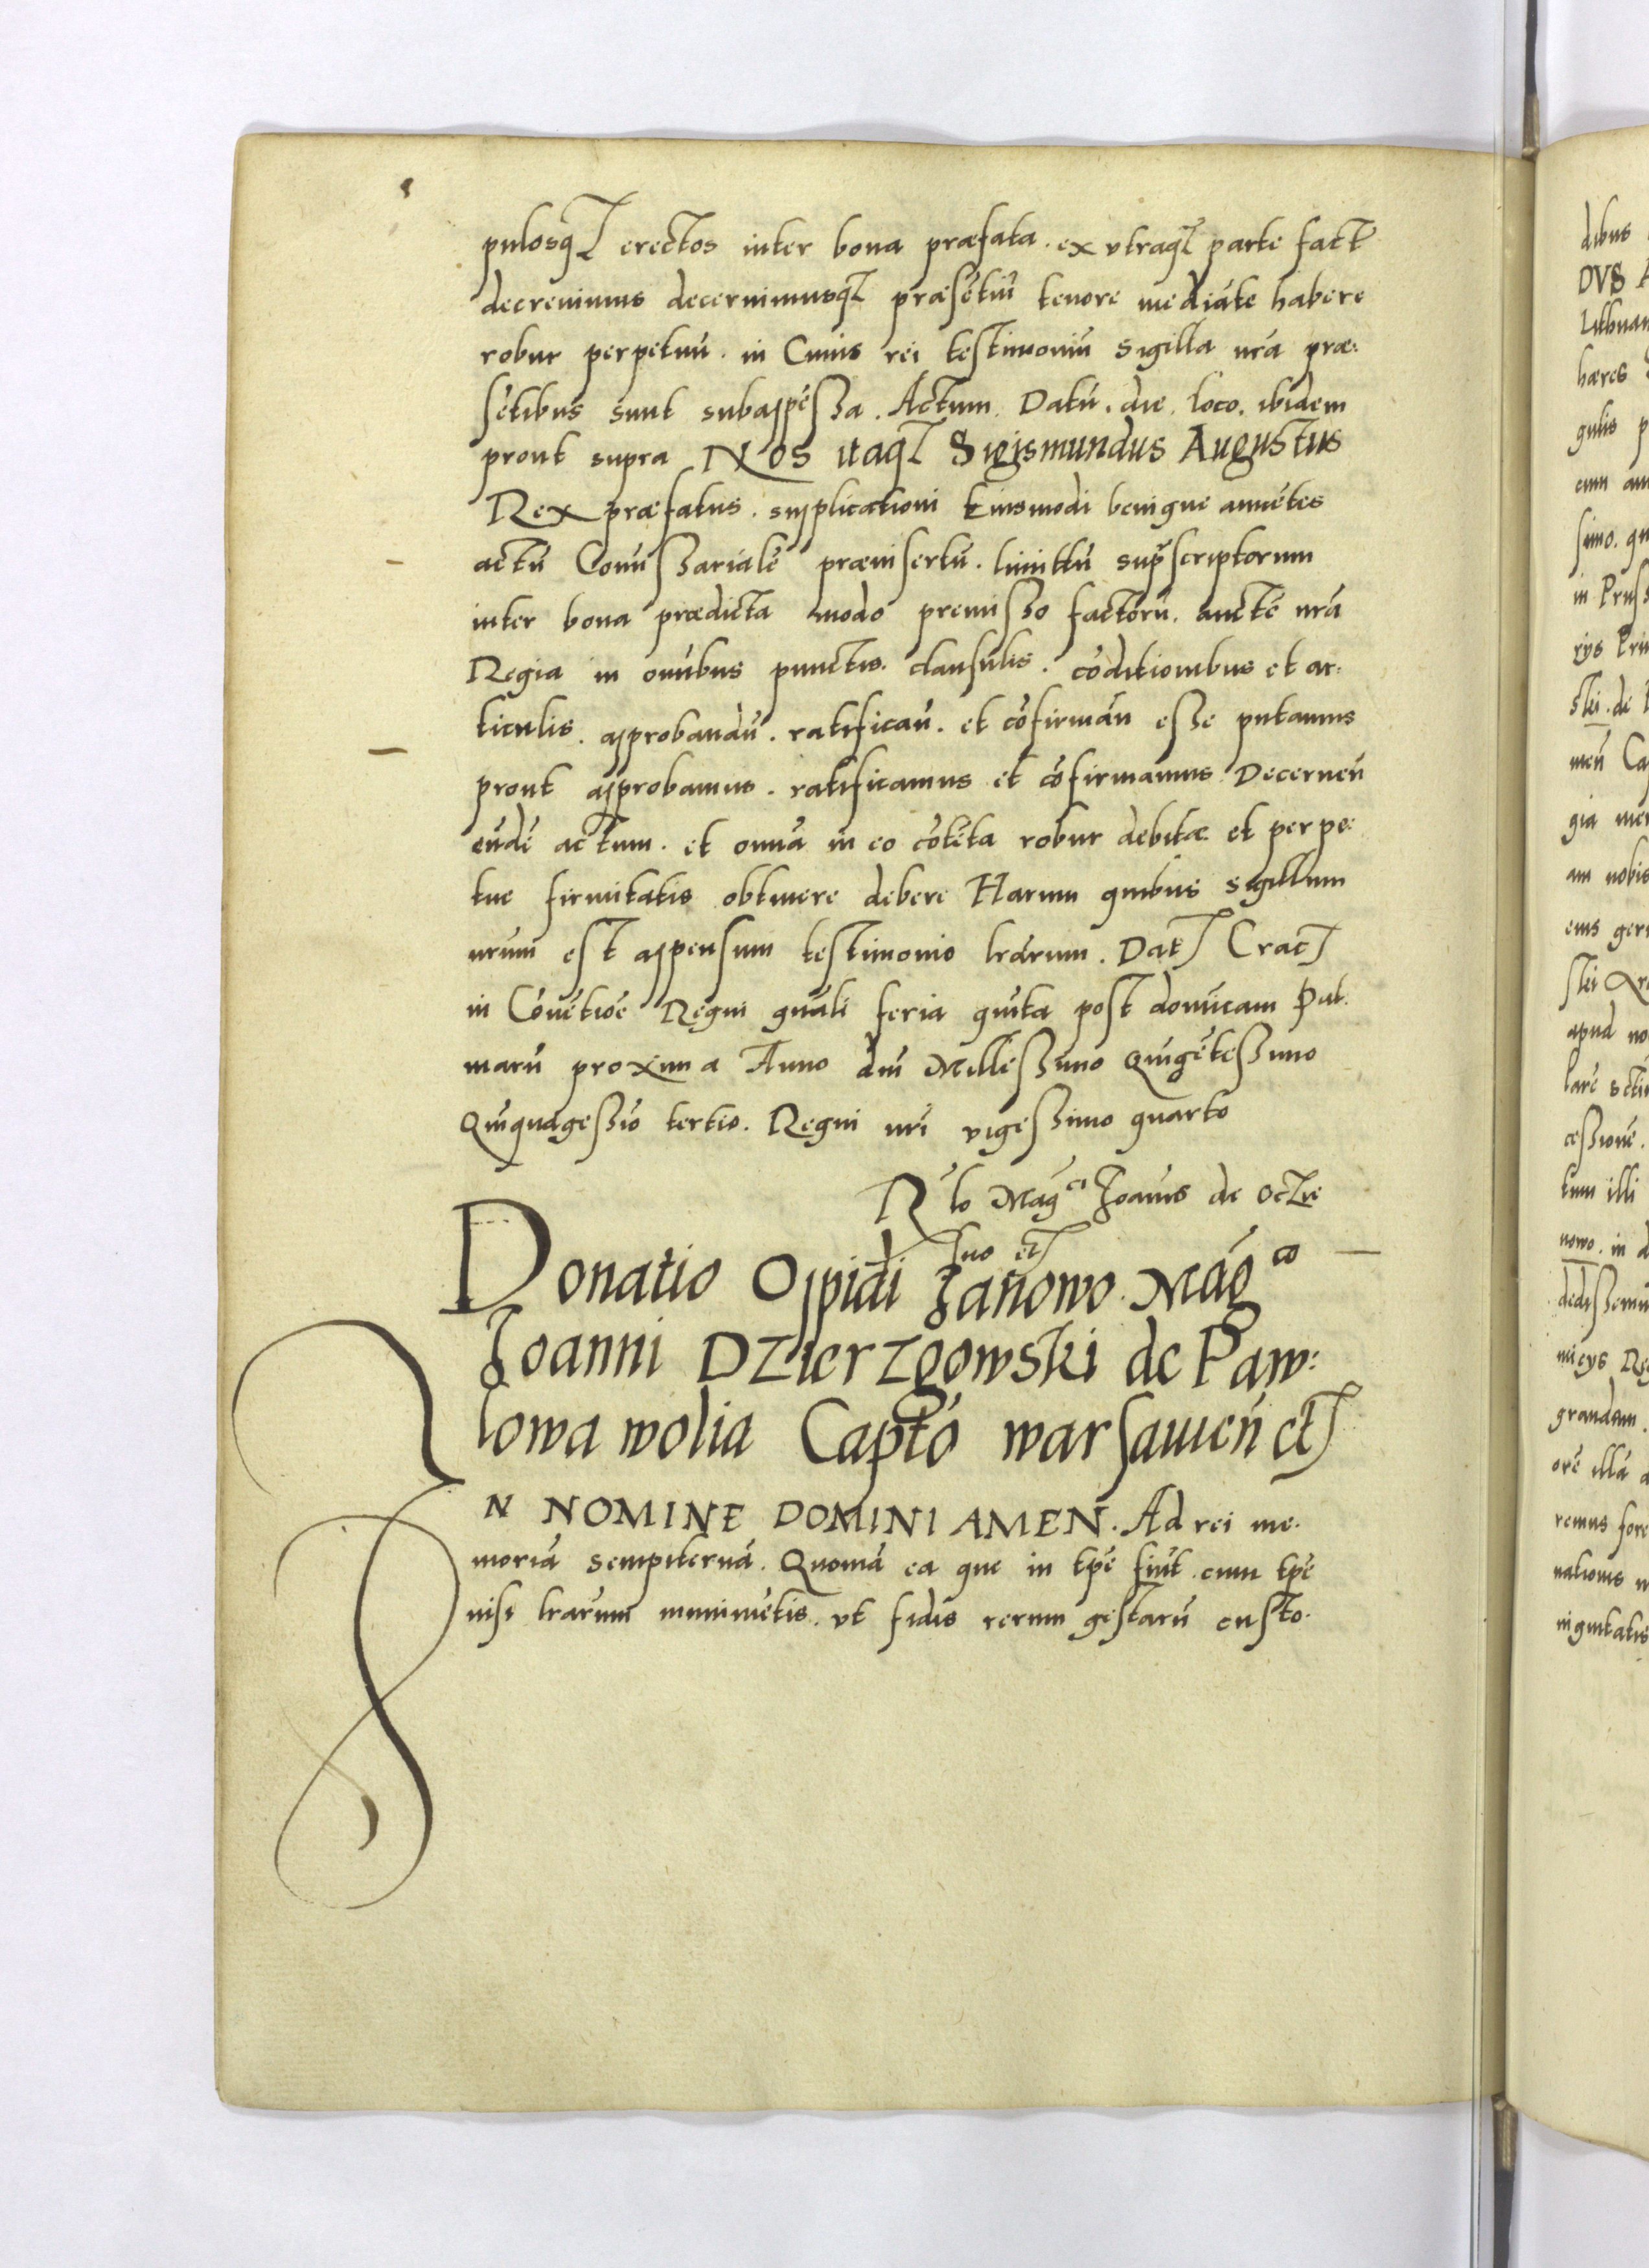 pulosq[ue] erectos inter bona præfata. ex vtraq[ue] parte fact[os]
decreuimus decernimusq[ue] præsētiū tenore mediāte habere
robur perpetuū. in Cuius rei testimoniū sigilla nr̄a præ:
sētibus sunt subappēssa. Actum. Datū. die. loco. ibidem
prout supra NOS itaq[ue] Sigismundus Augustus
Rex præfatus. supplicationi Eiusmodi benigne annuētes
actū Comissarialē præinsertū. limitū supscriptorum
inter bona prædicta modo premisso factorū. aucte nr̄a
Regia in omibus punctis. clausulis. cōditionibus et ar:
ticulis. approbandū. ratificañ. et cōfirmañ esse putauimus
prout approbamus. ratificamus et cōfirmamus Decerneñ
eūdē actum. et omīa in eo cōtēta robur debitæ et perpe:
tue firmitatis obtinere debere Harum quibus sigillum
nrum est appensum testimonio lrārum. Dat Crac
in Cōuētiōe Regni gnāli feria quīta post domīcam Pal:
marū proxima Anno dnī Millessimo Quīgētessimo
Quīquagessīo tertio. Regni nrī vigessimo quarto
Rlo Magci Joannis de Oczie
sno etc
Donatio Oppidi Janowo. Magco
Joanni Dzierzgowski de Paw:
lowa wolia Capto warsauieñ etc
N NOMINE DOMINI AMEN. Ad rei me.
moriā sempiternā. Quoniā ea que in tp̄e fiūt. cum tp̄e
nisi lrarum munimētis. vt fidis rerum gestarū custo.
dibus
DVS A
Lithuan
hæres
gulis p
cum am
simo. qu
in Pruss
stei. de
meñ Ca
gia mer
am nobis
eius ger
apud no
cessionē.
tum illi
nowo. in d
dedissemu
grandam.
orē illā a
remus fore
nationis